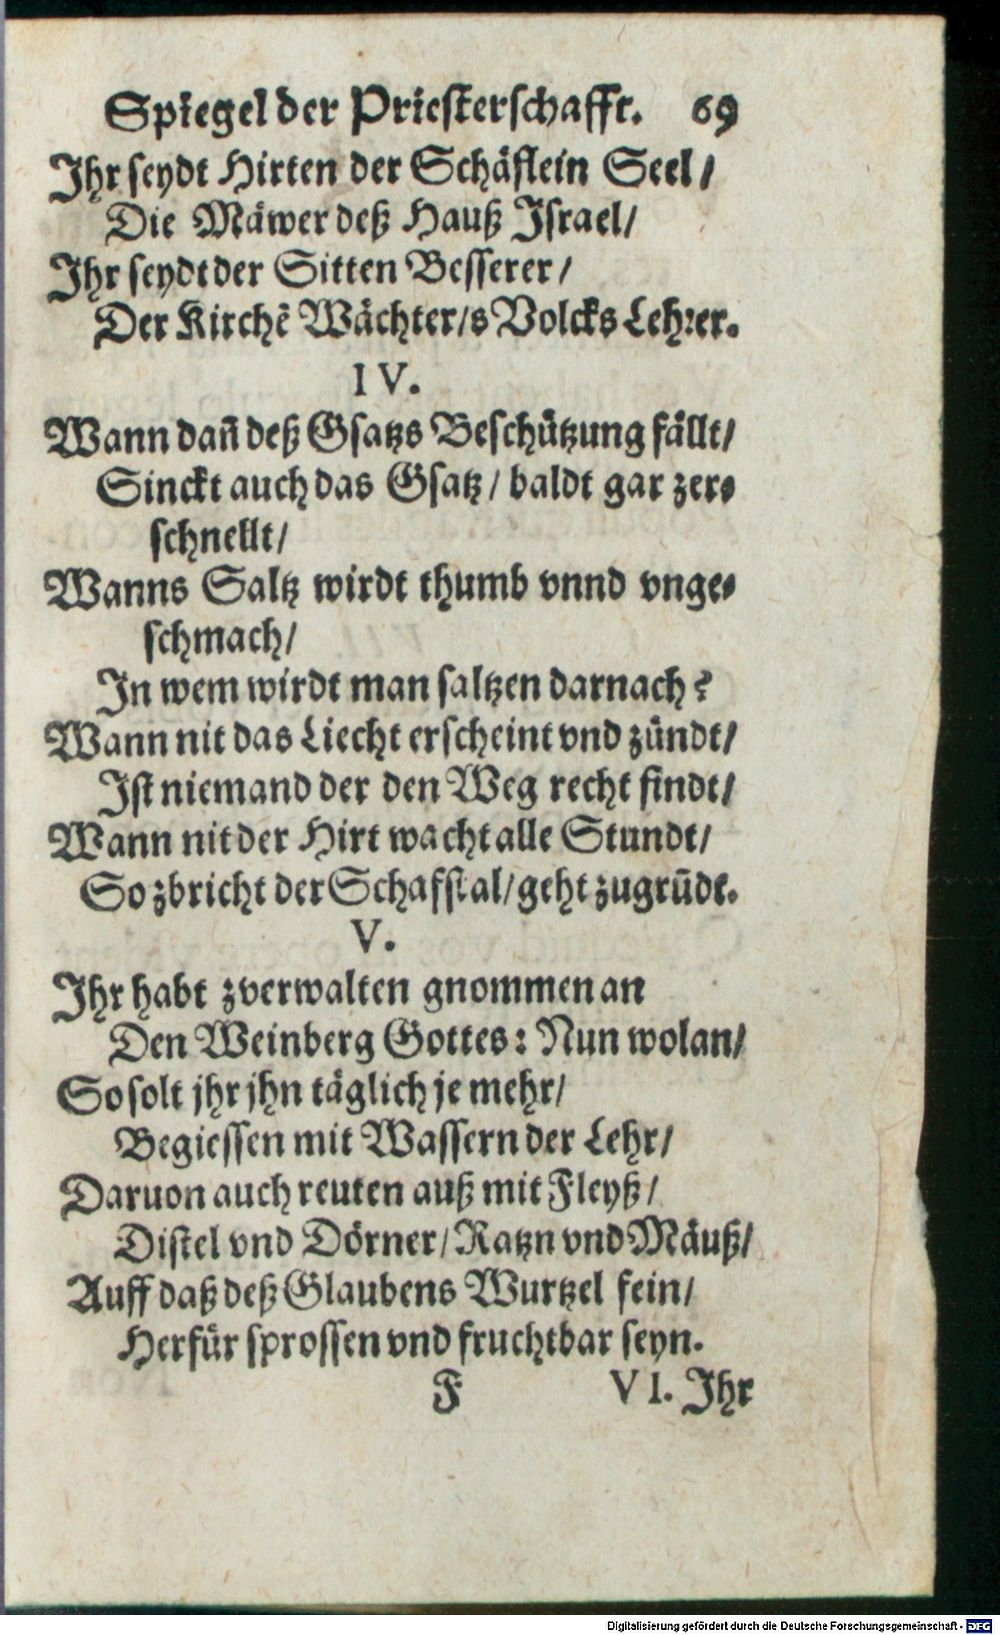 Spiegel der Priesterschafft. 69
Ihr seydt Hirten der Schäflein Seel/
Die Mäwer deß Hauß Israel/
Ihr seydt der Sitten Besserer/
Der Kirchẽ Wächter/s Volcks Lehrer.
IV.
Wann dañ deß Gsatzs Beschützung fällt/
Sinckt auch das Gsatz/ baldt gar zer-
schnellt/
Wanns Saltz wirdt thumb vnnd vnge-
schmach/
In wem wirdt man saltzen darnach?
Wann nit das Liecht erscheint vnd zündt/
Ist niemand der den Weg recht findt/
Wann nit der Hirt wacht alle Stundt/
So zbricht der Schafstal/geht zugrũdt.
V.
Ihr habt zverwalten gnommen an
Den Weinberg Gottes: Nun wolan/
So solt jhr jhn täglich je mehr/
Begiessen mit Wassern der Lehr/
Daruon auch reuten auß mit Fleyß/
Distel vnd Dörner/Ratzn vnd Mäuß/
Auff daß deß Glaubens Wurtzel fein/
Herfür sprossen vnd fruchtbar seyn.
F VI. Ihr
Digitalisierung gefördert durch die Deutsche Forschungsgemeinschaft - DFG